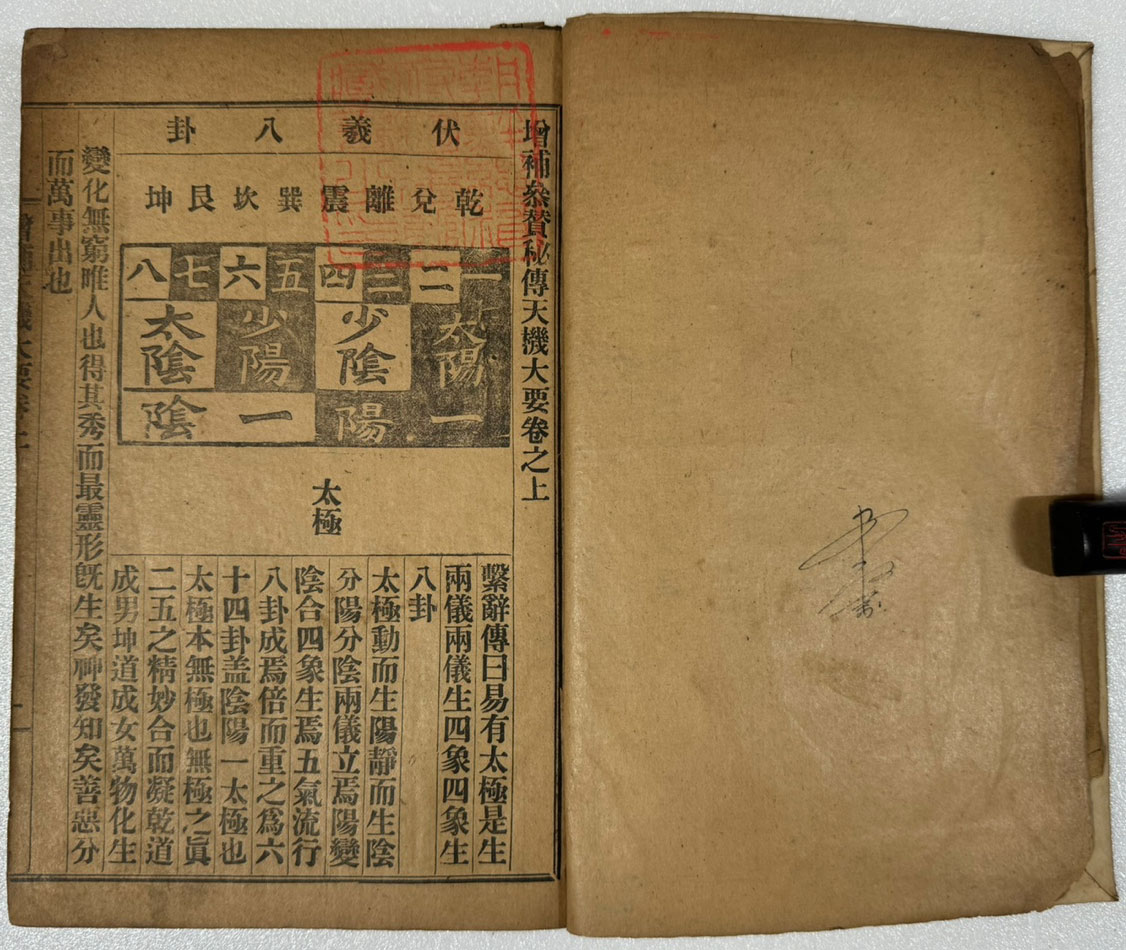 增補叅賛秘傳天機大要卷之上
伏羲八卦
乾兌離震巽坎艮坤
一二三四五六七八
太陽 少陰 少陽 太陰
一陽 一陰
太極
繫辭傳曰易有太極是生
兩儀兩儀生四象四象生
八卦
太極動而生陽靜而生陰
分陽分陰兩儀立焉陽變
陰合四象生焉五氣流行
八卦成焉倍而重之爲六
十四卦盖陰陽一太極也
太極本無極也無極之眞
二五之精妙合而凝乾道
成男坤道成女萬物化生
變化無窮唯人也得其秀而最靈形旣生矣神發知矣善惡分
而萬事出也